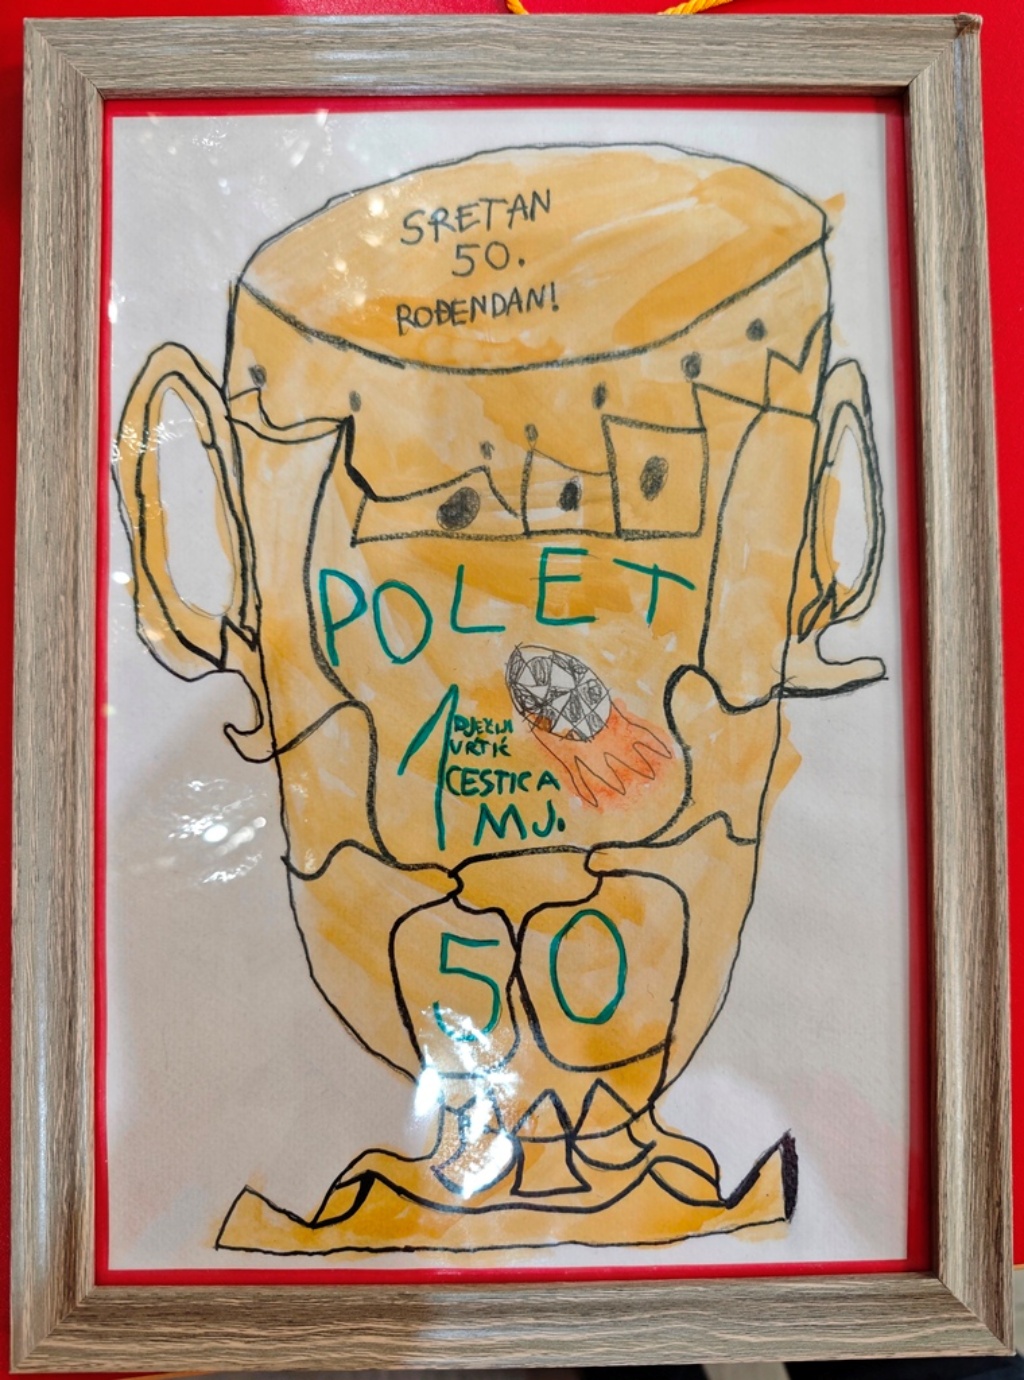 SRETAN
50.
ROĐENDAN!
POLET
1
DJEČJI
VRTIĆ
CESTICA
MJ.
50